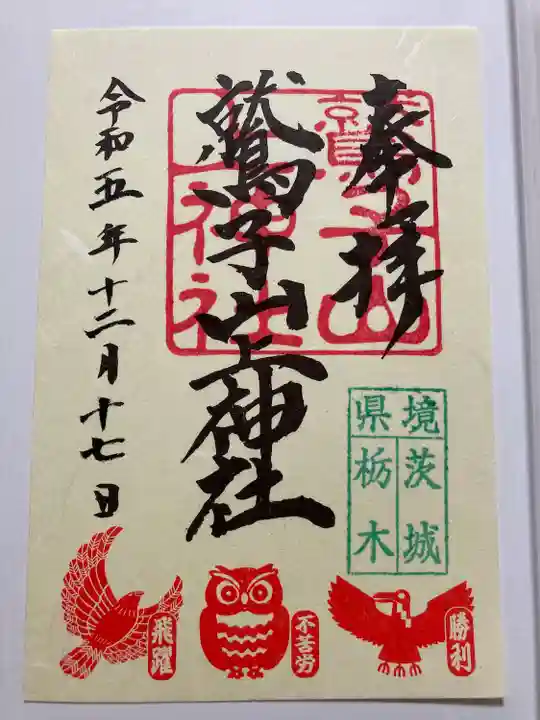 奉拝
鷲子山上神社
令和五年十二月十七日
鷲子山
上神社
境
県
茨城
栃木
飛躍
不苦労
勝利